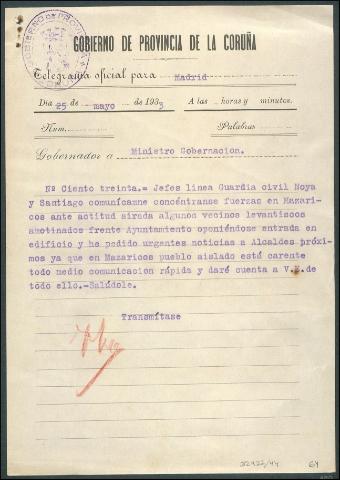 GOBIERNO DE PROVINCIA
GOBIERNO DE PROVINCIA DE LA CORUÑA
Telegrama oficial para Madrid
Día 25 de mayo de 1933 A las horas y minutos.
Núm. Palabras
Gobernador a Ministro Gobernación.
Nº Ciento treinta.= Jefes línea Guardia civil Noya
y Santiago comunícamne concéntranse fuerzas en Mazari-
cos ante actitud airada algunos vecinos levantiscos
amotinados frente Ayuntamiento oponiéndose entrada en
edificio y he pedido urgentes noticias a Alcaldes próxi-
mos ya que en Mazaricos pueblo aislado está carente
todo medio comunicación rápida y daré cuenta a V.E. de
todo ello.-Salúdole.
Transmítase
64